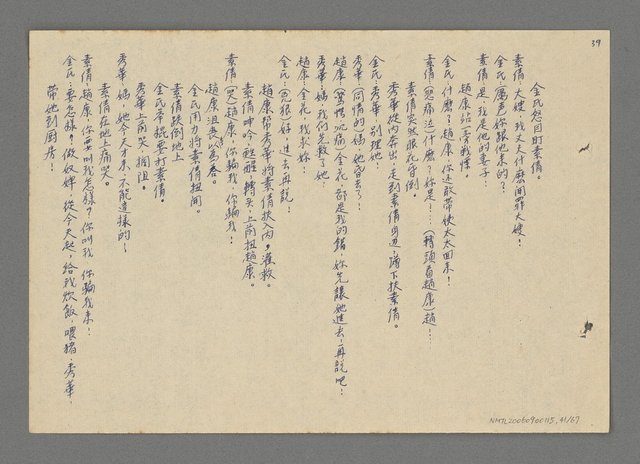 39
金氏怨目盯素倩。
素倩：大嫂，我丈夫什麼開罪大嫂！
金氏：（厲色）你跟他來的？：
素倩：是，我是他的妻子
趙康站一旁戰慄。
金氏：什麼？趙康，你這敢帶使太太回來！
素倩：（悲痛过）什麼？妳是……（轉頭看趙康）趙……
素倩突然眼花昏倒。
秀華從內奔出，走到素倩身边，蹲下扶素倩。
金氏：秀華，别理她。
秀華：（同情的）媽，她昏去了！
趙康：（驚愕沉痛）金花，都是我的錯，妳先讓她進去，再說吧！
秀華：媽，我們先救了她，
趙康：金花，我求妳：
金氏：（兇狠）好，進去再說！
趙康帮秀華將素倩扶入內，灌救。
素倩呻吟，甦醒，轉头，上前扭趙康。
素倩：（哭）趙康，你騙我，你騙我！
趙康沮喪以為恭。
金氏用力將素倩扭開。
素倩跌倒地上
金氏举棍要打素倩。
秀華上前哭，攔阻。
秀華：媽，她今天才來，不能這樣的！
素倩在地上痛哭。
素倩：趙康，你要叫我怎樣？你叫我，你騙我來！
金氏：要怎樣！做奴婢，從今天起，給我炊飯，喂猪，秀華，
帶她到厨房！
NMTL20060900115, 41/67